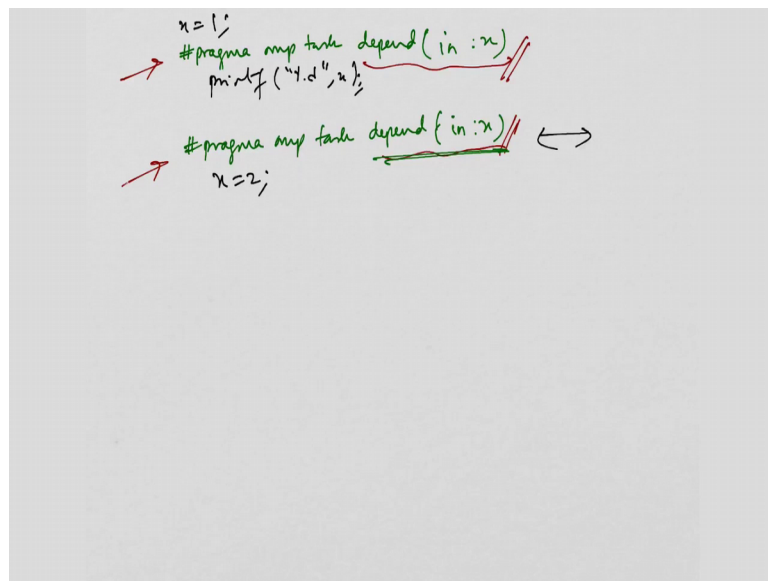 x=1;
#pragma omp task depend(in:x)
printf("%d",x);
#pragma omp task depend(in:x)
x=2;